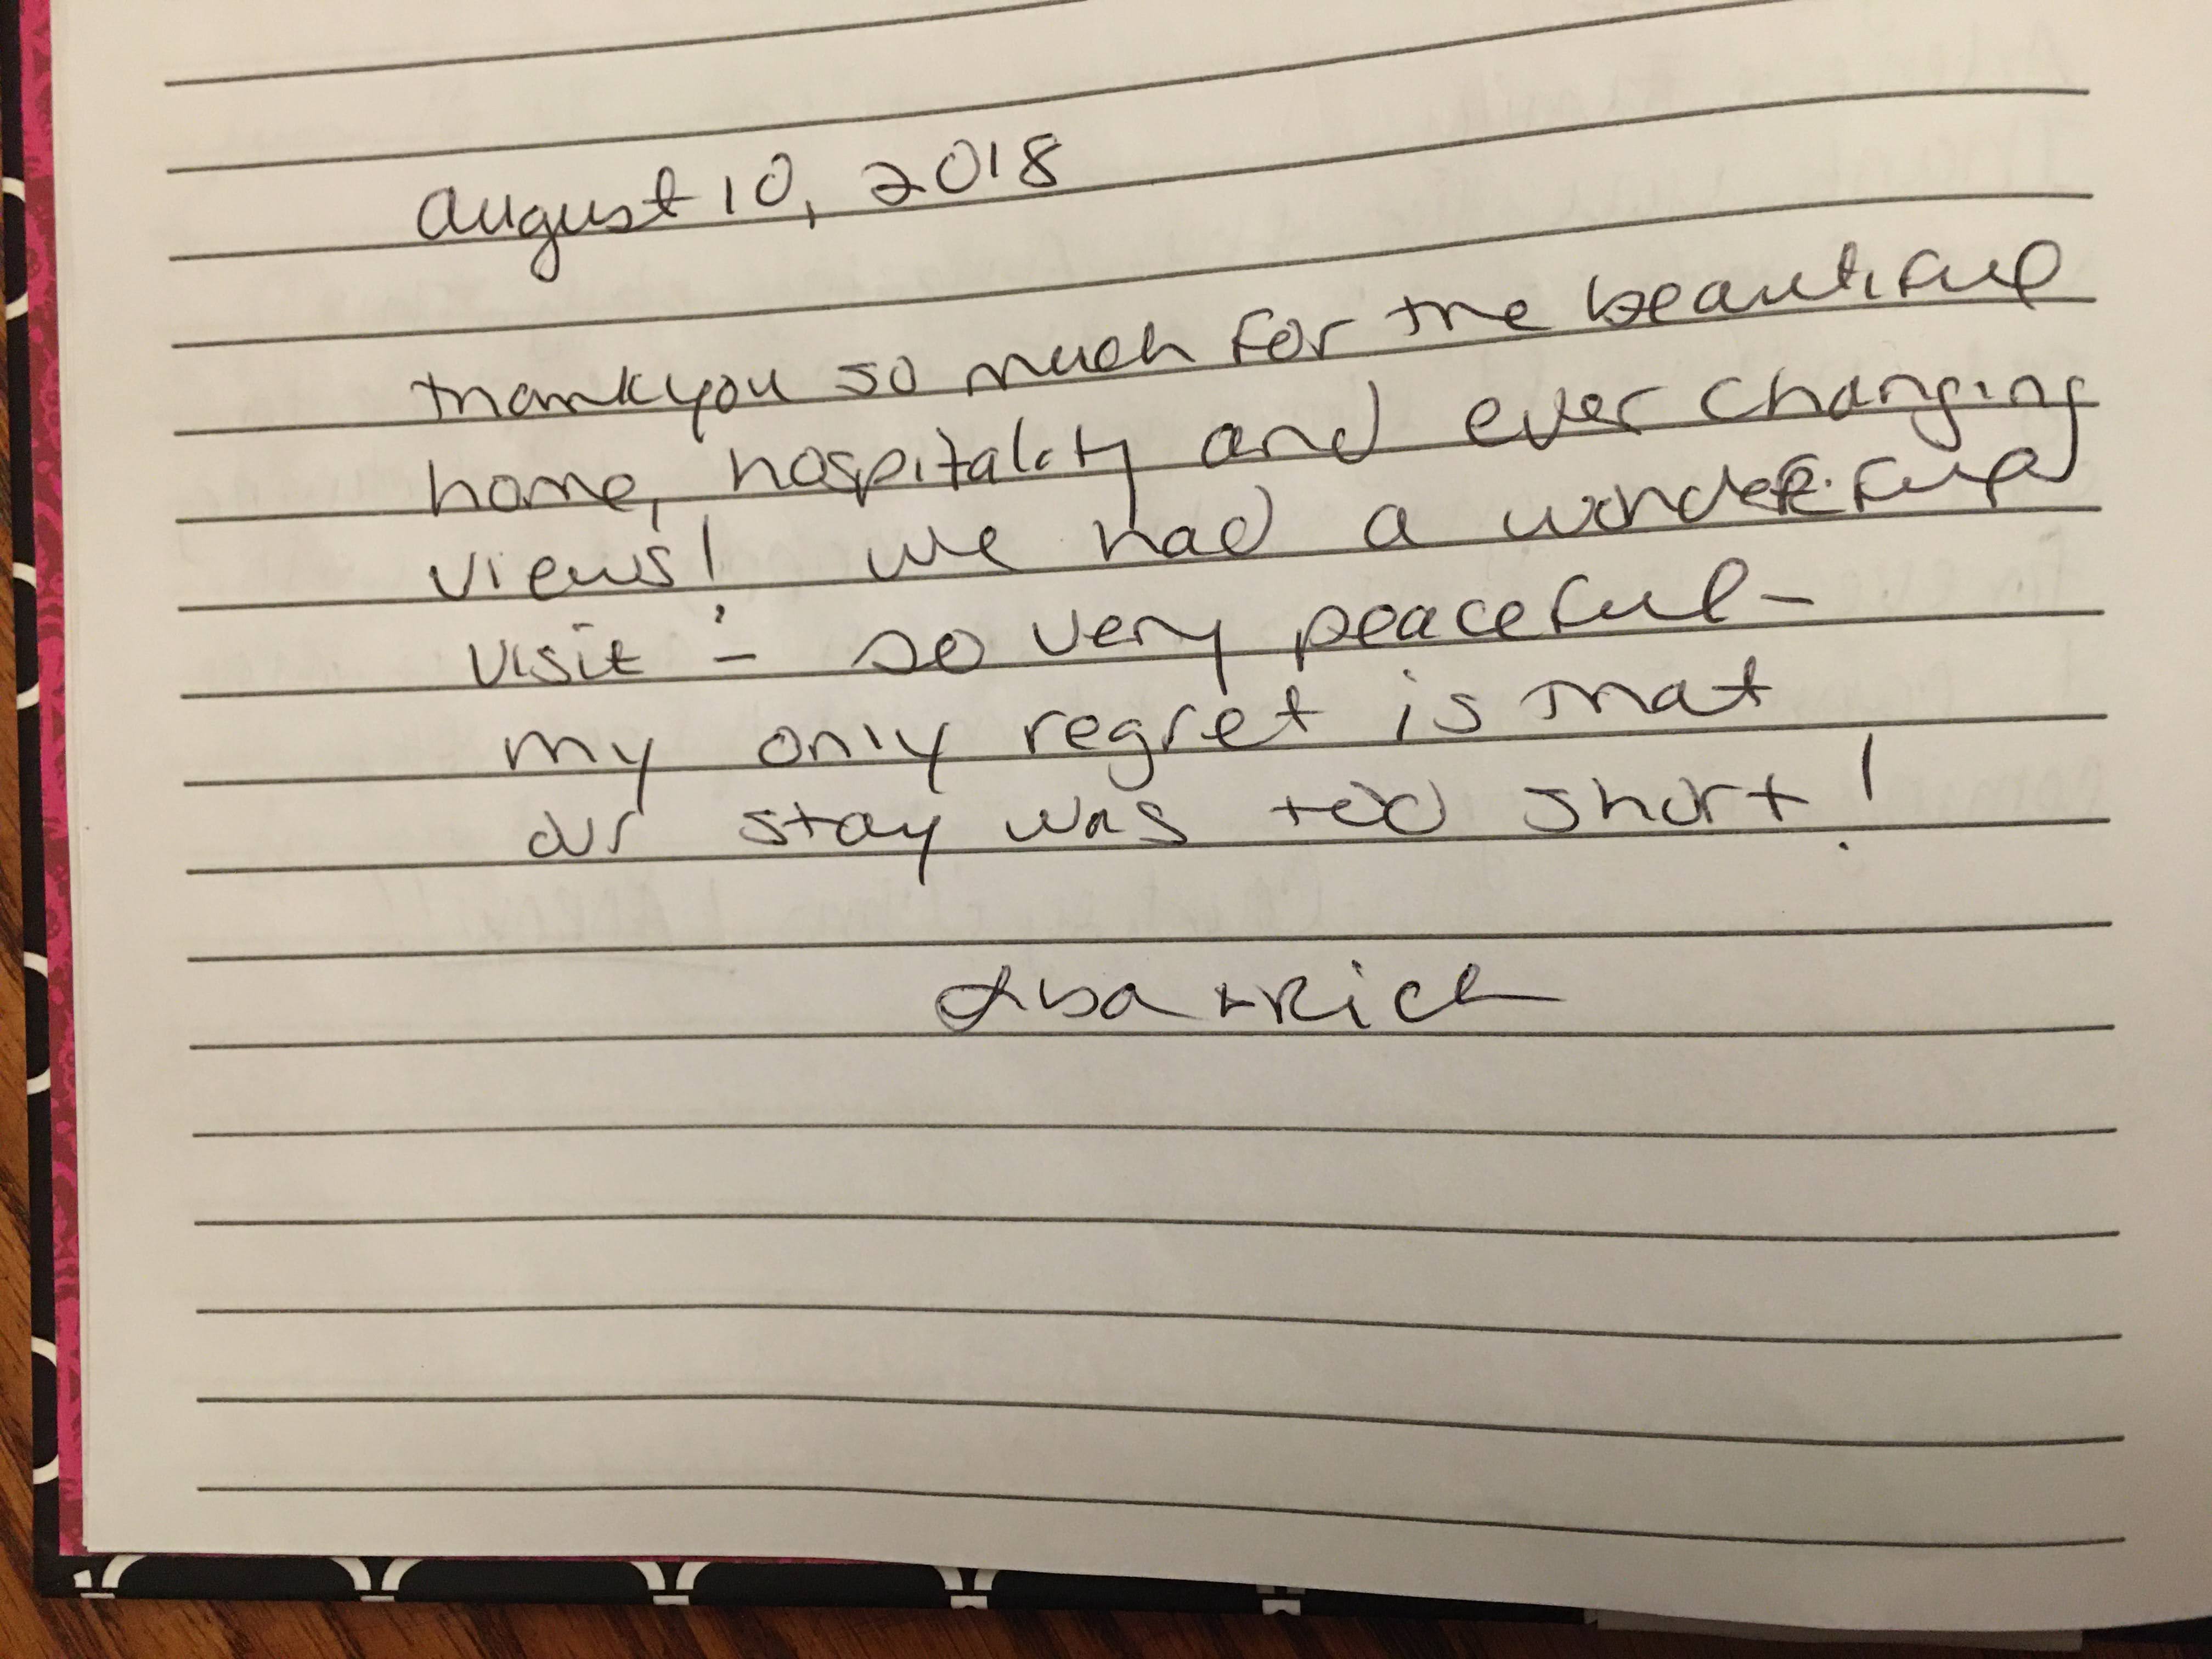 August 10, 2018
thank you so much for the beautiful
home, hospitality and ever changing
views! we had a wonderful
visit - so very peaceful -
my only regret is that
our stay was too short!
Lisa + Rich